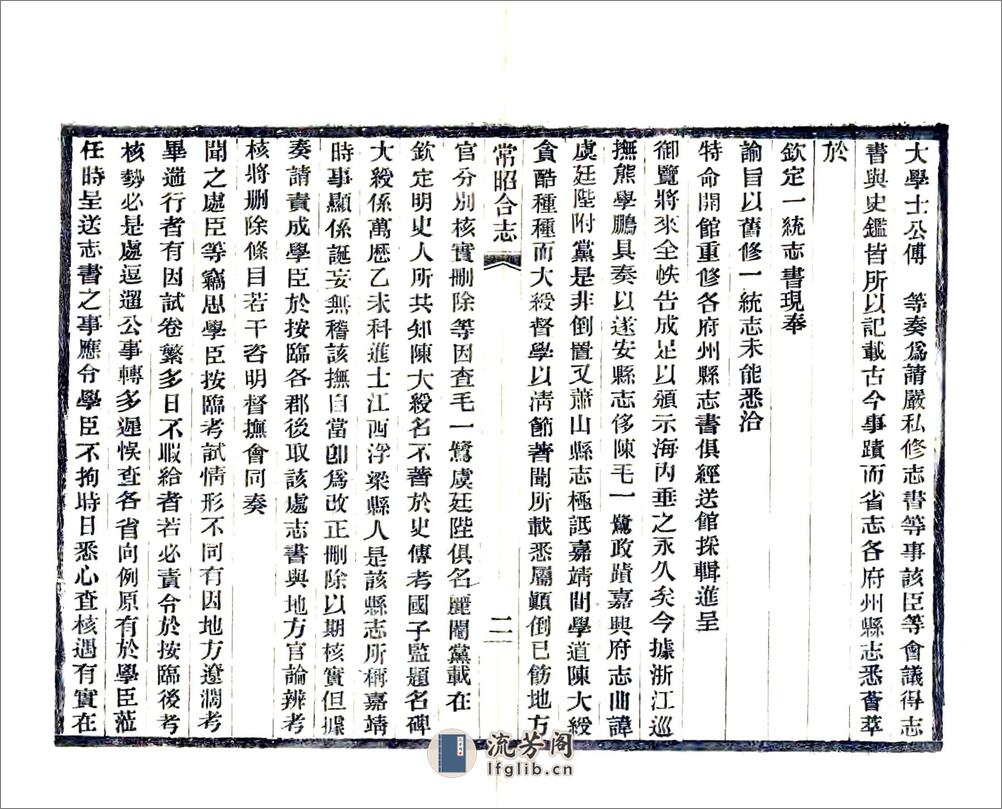 大學士公傅　等奏爲請嚴私修志書等事該臣等會議得志
書與史鑑皆所以記載古今事蹟而省志各府州縣志悉薈萃
於
欽定一統志書現奉
諭旨以舊修一統志未能悉洽
特命開館重修各府州縣志書俱經送館採輯進呈
御覽將來全帙告成足以頒示海内垂之永久矣今據浙江巡
撫熊學鵬具奏以遂安縣志侈陳毛一鷺政蹟嘉興府志曲諱
虞廷陛附黨是非倒置又蕭山縣志極詆嘉靖間學道陳大綬
貪酷種種而大綬督學以清節著聞所載悉屬顚倒已飭地方
常昭合志
二
官分別核實刪除等因查毛一鷺虞廷陛俱名麗閹黨載在
欽定明史人所共知陳大綬名不著於史傳考國子監題名碑
大綬係萬歷乙未科進士江西浮梁縣人是該縣志所稱嘉靖
時事顯係誕妄無稽該撫自當卽爲改正刪除以期核實但據
奏請責成學臣於按臨各郡後取該處志書與地方官論辨考
核將刪除條目若干咨明督撫會同奏
聞之處臣等竊思學臣按臨考試情形不同有因地方遼濶考
畢遄行者有因試卷繁多日不暇給者若必責令於按臨後考
核勢必是處逗遛公事轉多遲悞查各省向例原有於學臣蒞
任時呈送志書之事應令學臣不拘時日悉心查核遇有實在
流芳阁
lfglib.cn